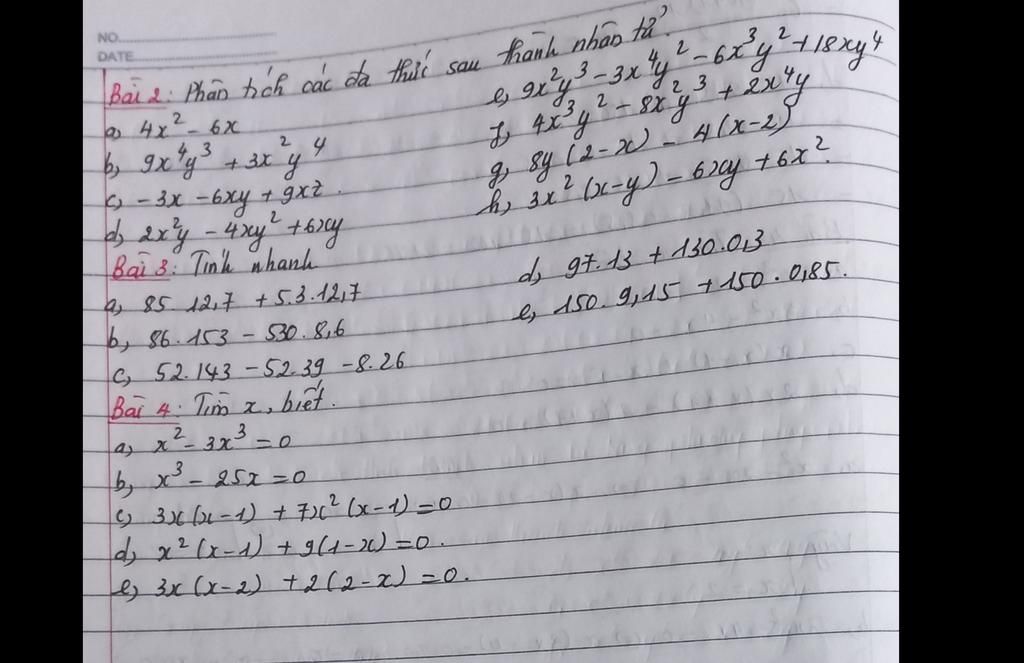 NO.
DATE
Bài 2: Phân tích các đa thức sau thành nhân tử.
a, 4x² - 6x
b, 9x⁴y³ + 3x²y⁴
c, -3x - 6xy + 9xz.
d, 2x²y - 4xy² + 6xy
e, 9x²y³ - 3x⁴y² - 6x³y² + 18xy⁴
f, 4x³y² - 8x²y³ + 2x⁴y
g, 8y(2-x) - 4(x-2)
h, 3x²(x-y) - 6xy + 6x².
Bài 3: Tính nhanh
a, 85.12,7 + 5.3.12,7
b, 86.153 - 530.8,6
c, 52.143 - 52.39 - 8.26
d, 97.13 + 130.0,3
e, 150.9,15 + 150.0,85.
Bài 4: Tìm x, biết.
a, x² - 3x³ = 0
b, x³ - 25x = 0
c, 3x(x-1) + 7x²(x-1) = 0
d, x²(x-1) + 9(1-x) = 0.
e, 3x(x-2) + 2(2-x) = 0.